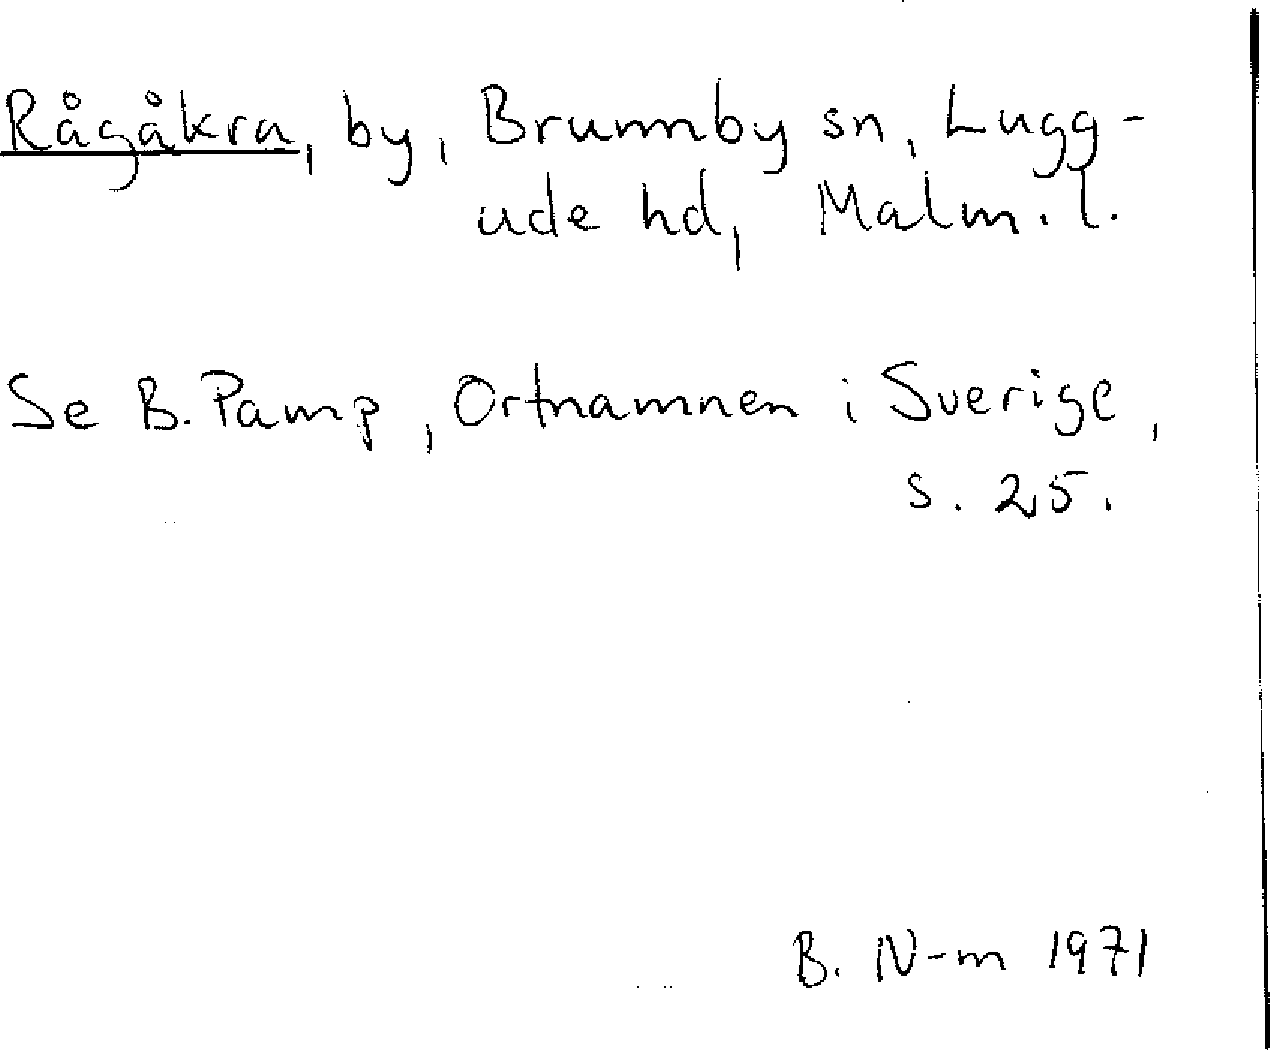 Rågåkra, by, Brunnby sn, Lugg-
ude hd, Malm. l.
Se B. Pamp, Ortnamnen i Sverige,
s. 25.
B. N-m 1971